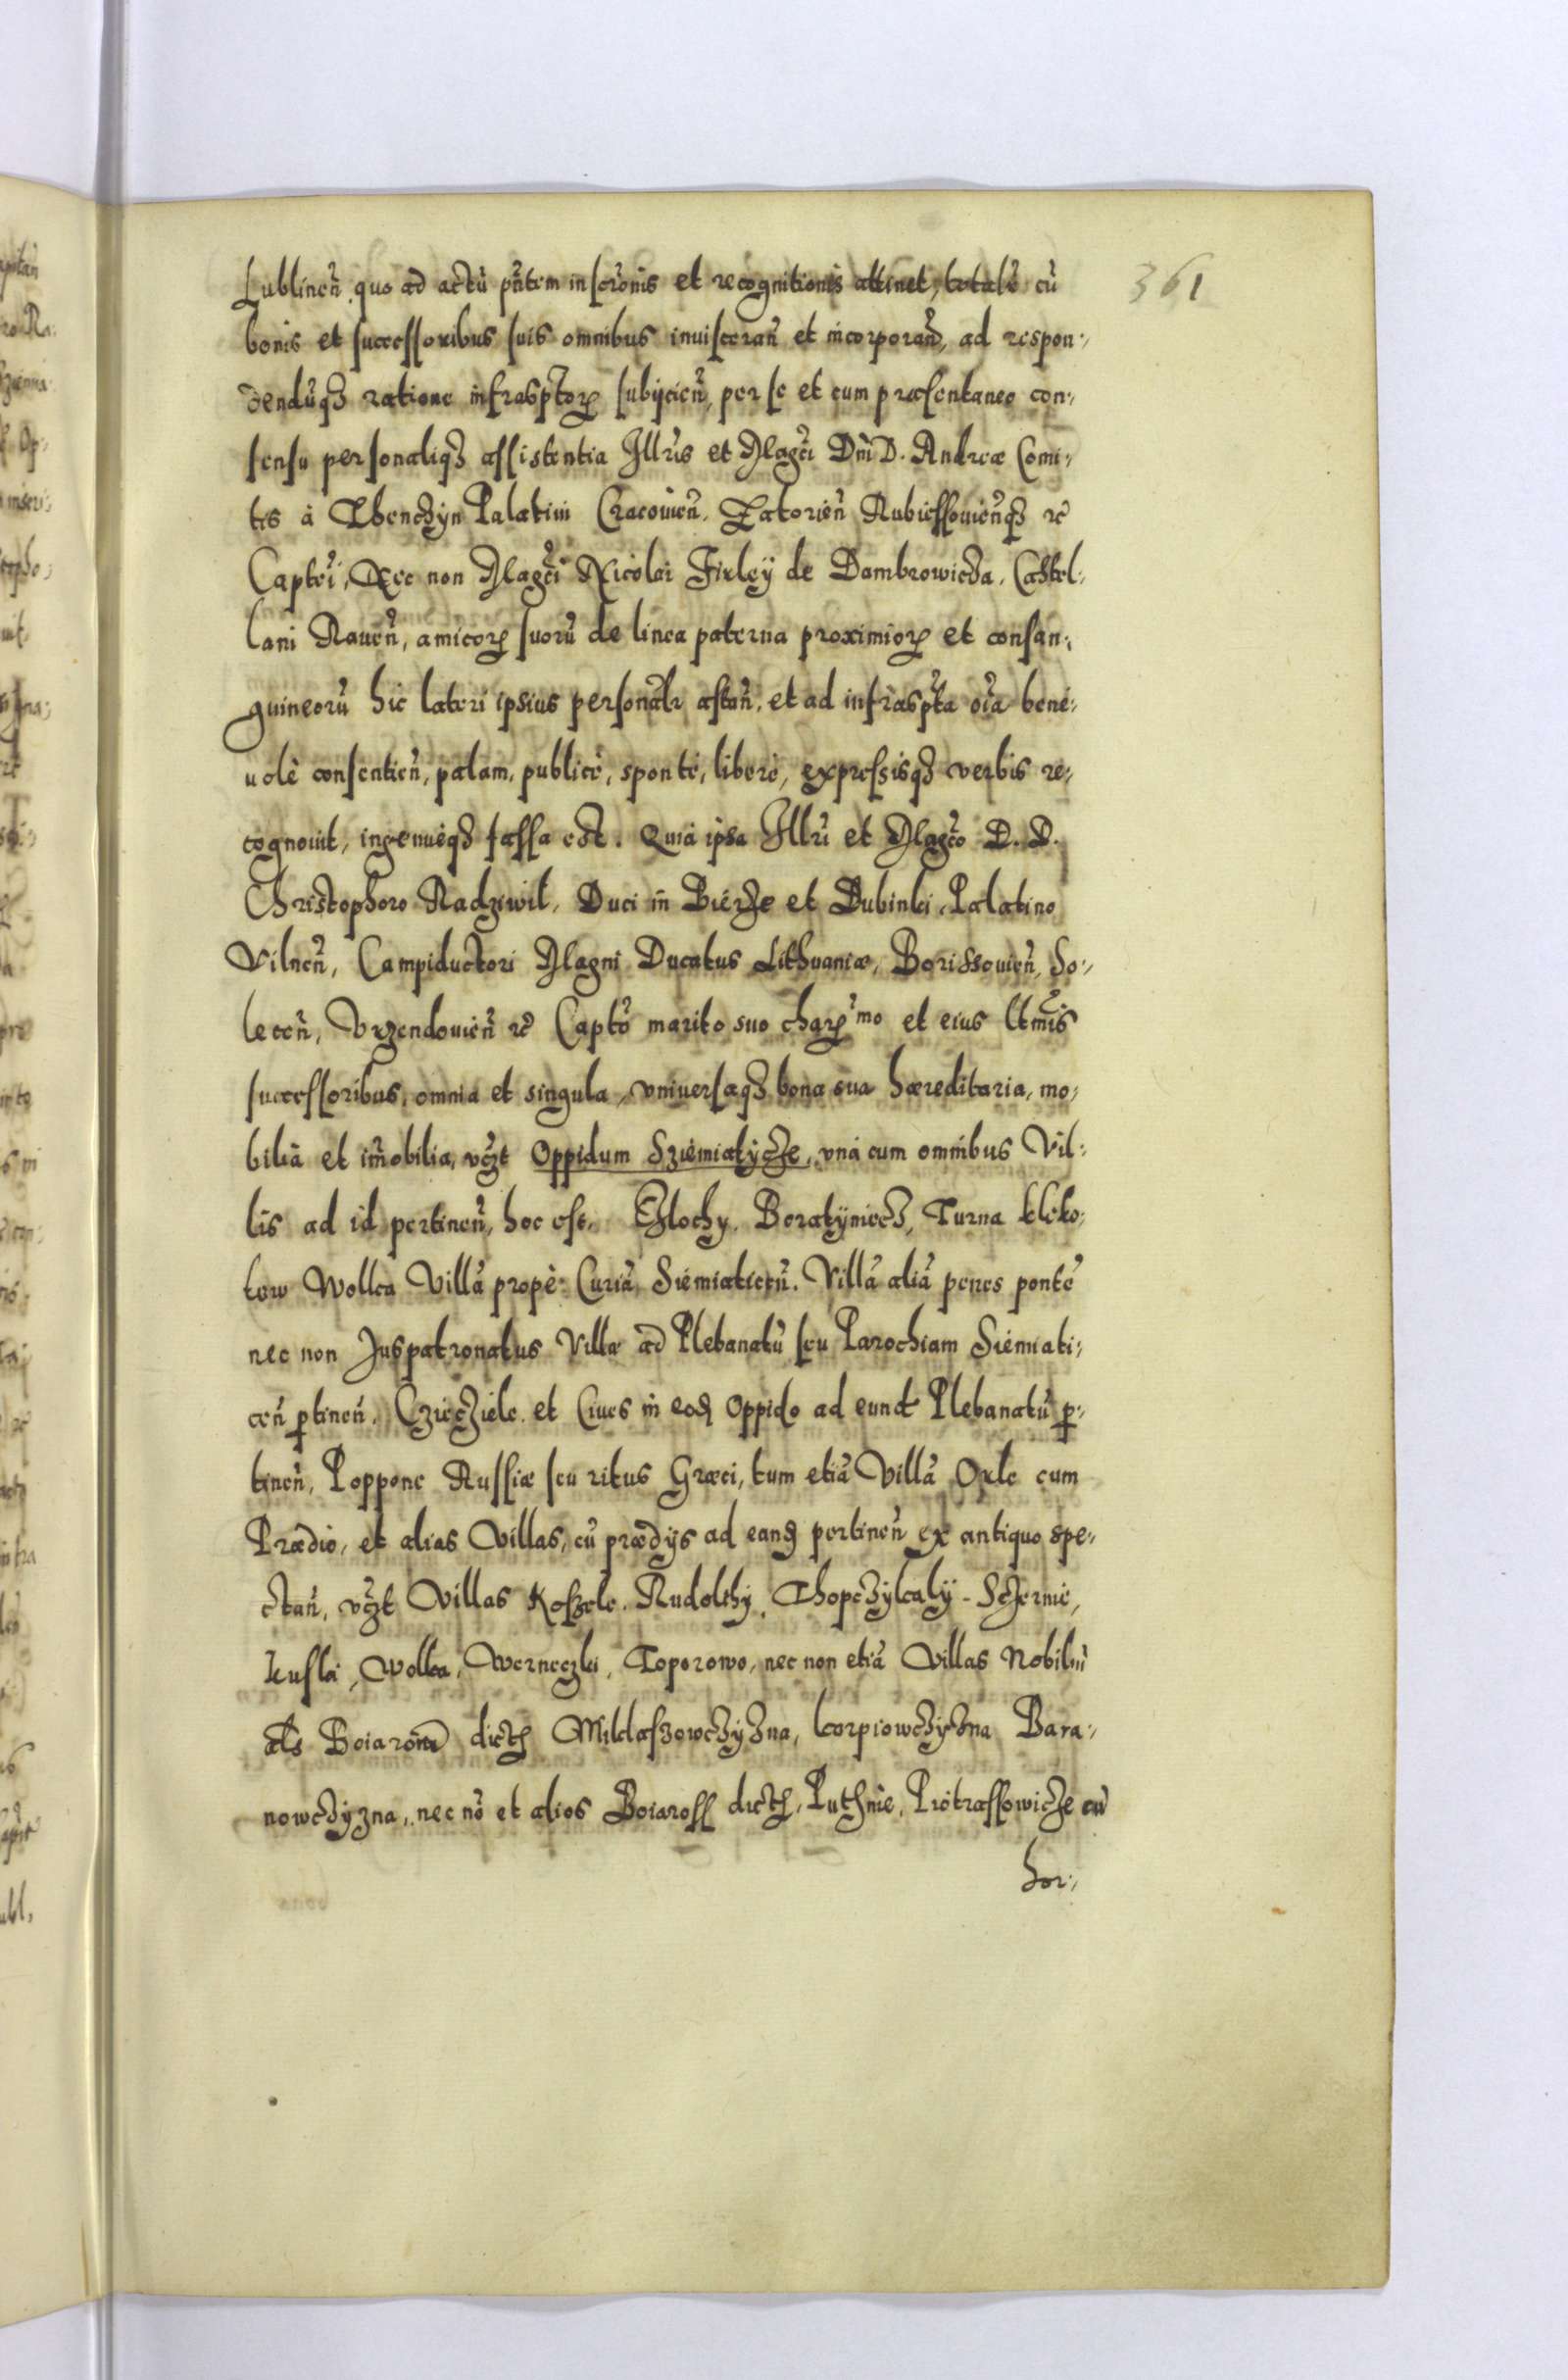 361
Lublineñ quo ad actũ pñtem inscrõnis et recognitionis attinet, totalẽ cũ
bonis et successoribus suis omnibus inuisceran̄ et incorporan̄, ad respon:,
dendũqꝫ ratione infrasptorꝝ subijcien̄, per se et cum præsentaneo con:,
sensu personaliqꝫ assistentia Illris et Magci Dni D. Andreæ Comi:,
tis à Thenczÿn Palatini Cracouien̄. Zatorien̄ Rubiessouien̄qꝫ ꝛc̃
Captei, Nec non Magci Nicolai Firleÿ de Dambrowicza, Castel:,
lani Rauen̄, amicorꝝ suorũ de linea paterna proximiorꝝ et consan:,
guineorũ hic lateri ipsius personalr astan̄. et ad infraspta oĩa bene:,
uolè consentien̄, palam, publicè, spontè, liberè, expressisqꝫ verbis re:,
cognouit, ingenueqꝫ fassa est. Quia ipsa Illri et Magco D. D.
Christophoro Radziwil, Duci in Bierże et Dubinki, Palatino
Vilnen̄, Campiductori Magni Ducatus Lithuaniæ, Borissouien̄, So:,
lecen̄, Vrzendouien̄ ꝛc̃ Capto marito suo charꝝmo et eius ltmis
successoribus, omnia et singula, vniuersaqꝫ bona sua hæreditaria, mo:,
bilia et im̄obilia, vczt Oppidum Sziemiatÿcze, vnà cum omnibus Vil:,
lis ad id pertinen̄, hoc est. Czlochy. Boratÿniecz, Turna kleko:,
tow Wolka Villã propè Curiã Siemiaticen̄. Villã aliã penes pontẽ
nec non Juspatronatus Villæ ad Plebanatũ seu Parochiam Siemiati:,
cen̄ ꝑtinen̄. Czieczziele. et Ciues in eoꝺ Oppido ad eundt Plebanatũ ꝑ:,
tinen̄, Poppone Russiæ seu ritus Græci, tum etiã Villã Orle cum
Prædio, et alias Villas, cũ prædijs ad eanꝺ pertinen̄ ex antiquo spe:,
ctan̄, vczt Villas Koszele. Rudolthy. Thopczÿkalÿ. Sczernie,
kusla, Wolka, Werneczki, Toporowo, nec non etiã Villas Nobiliũ
als Boiarom̃ dictꝫ Miklaszowczÿzna, korpiowczÿzna Bara:,
nowczÿzna, nec nõ et alios Boiaross dictꝫ, Puthnie, Piotrassowicze cũ
hor:,